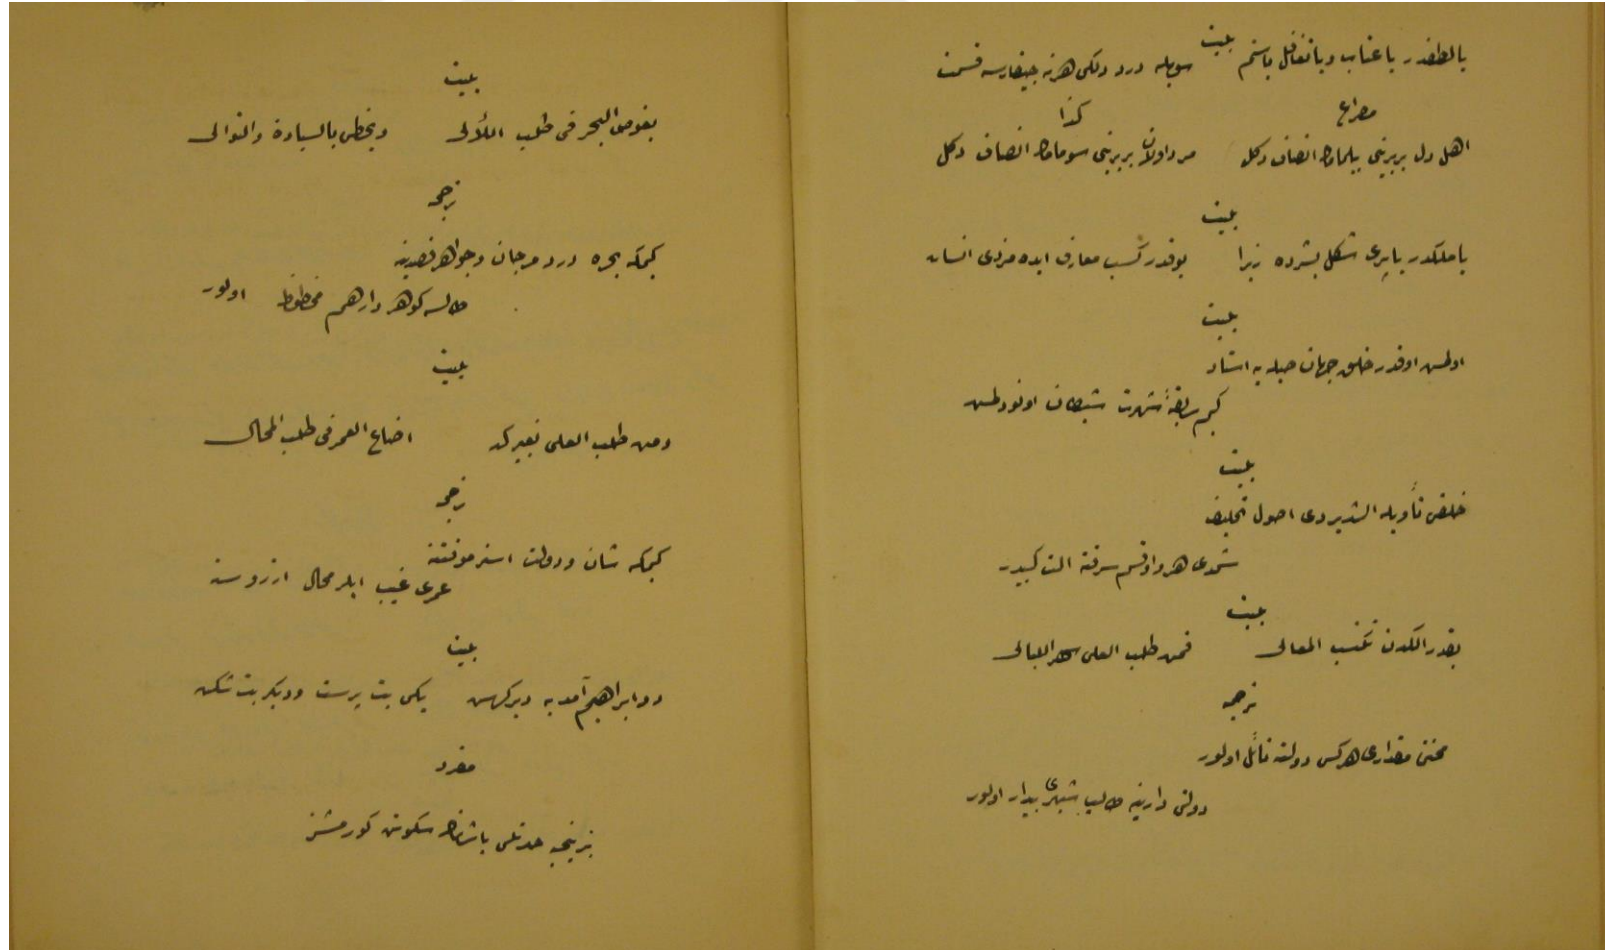 يا لطفدر يا عتاب ويا تغافل يا ستم
بيت
سويله درد دلكى هرنه چيقارسه قسمت
مصراع
كذا
اهل دل بربرينى بيلمامك انصاف دكل
مرد اولان بربرينى سومامك انصاف دكل
بيت
يا ملكدر يا پرى شكل بشرده زيرا
يوقدر كسب معارف ايده مزدى انسان
بيت
اولمش اوقدر خلق جهان حيله يه استاد
كيم سابقهٔ شهرت شيطان اونودلمش
بيت
خلقى تأويله الشديردى اصول تحليف
شمدى هر واقسم سرقته الت كبيدر
بيت
بقدر الكدّ تكتسب المعالى
فمن طلب العلى سهر الليالى
ترجمه
محنتى مقدارى هركس دولته نائل اولور
دولتى دارينه طالب شبلرى بيدار اولور
بيت
يغوص البحر فى طلب اللآلى
ويحظى بالسيادة والنوالى
ترجمه
كيمكه بحره درد مرجان وجواهر قصدينه
طالسه كوهردارهم محظوظ اولور
بيت
ومن طلب العلى بغير كد
اضاع العمر فى طلب المحال
ترجمه
كيمكه شان ودولت استر موقتنه
عمرى غيب ايلر محال ارزوسنه
بيت
دو ابراهيم آمد به ديركهن
يكى بت پرست وديكر بت شكن
مفرد
بز نيجه حدتلى باشلرك سكوتن كورمشز